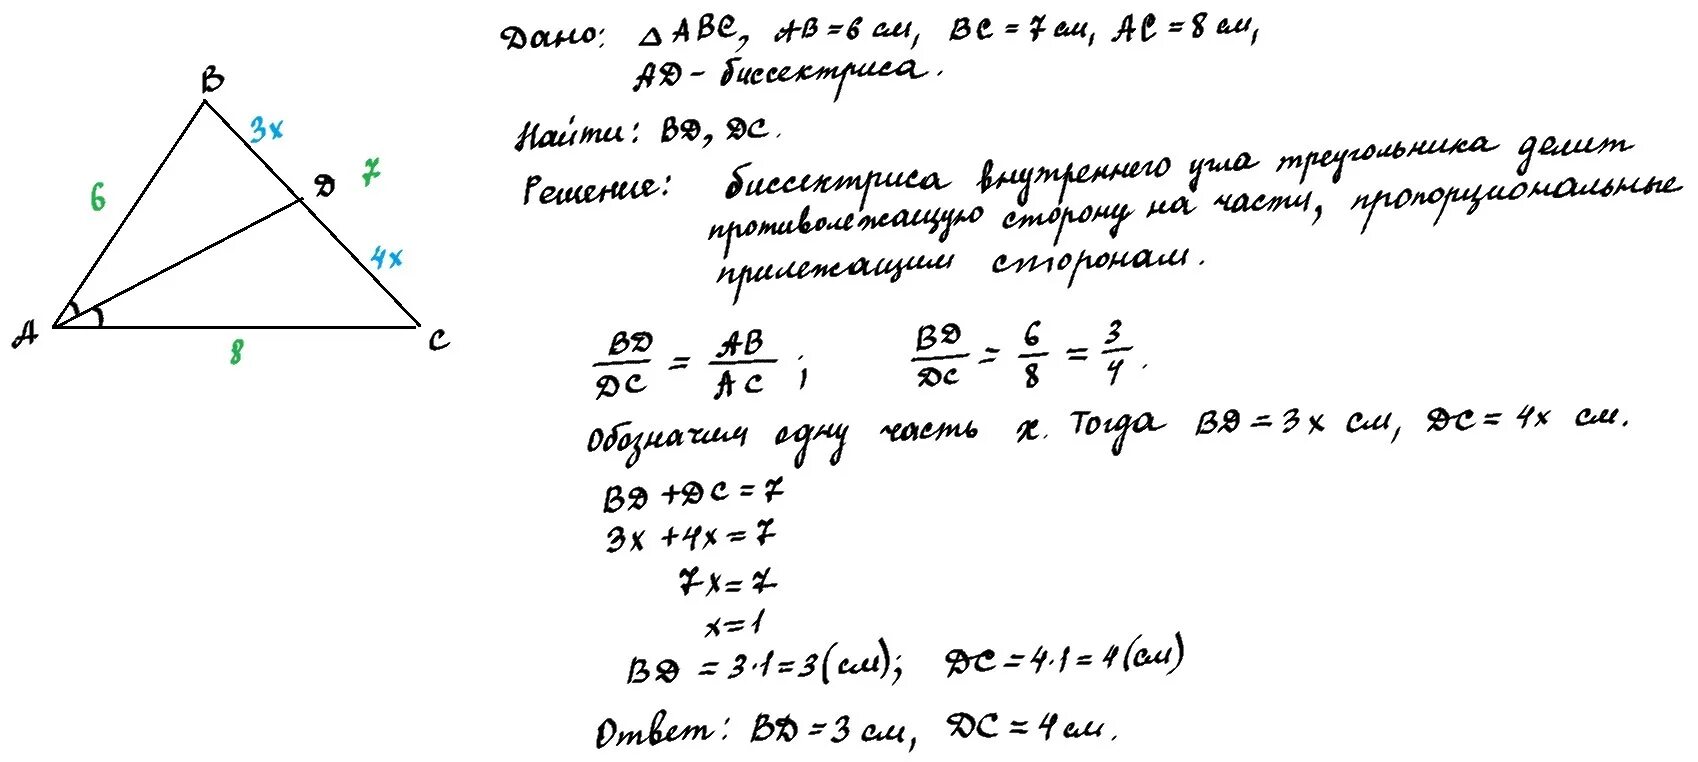 Дано: △ABC, AB=6 см, BC=7 см, AC=8 см,
AD - биссектриса.
Найти: BD, DC.
Решение: биссектриса внутреннего угла треугольника делит
противолежащую сторону на части, пропорциональные
прилежащим сторонам.
B
3x
D
7
6
4x
A
8
C
BD/DC = AB/AC ; BD/DC = 6/8 = 3/4.
Обозначим одну часть x. Тогда BD=3x см, DC=4x см.
BD+DC=7
3x+4x=7
7x=7
x=1
BD=3·1=3(см); DC=4·1=4(см)
Ответ: BD=3 см, DC=4 см.